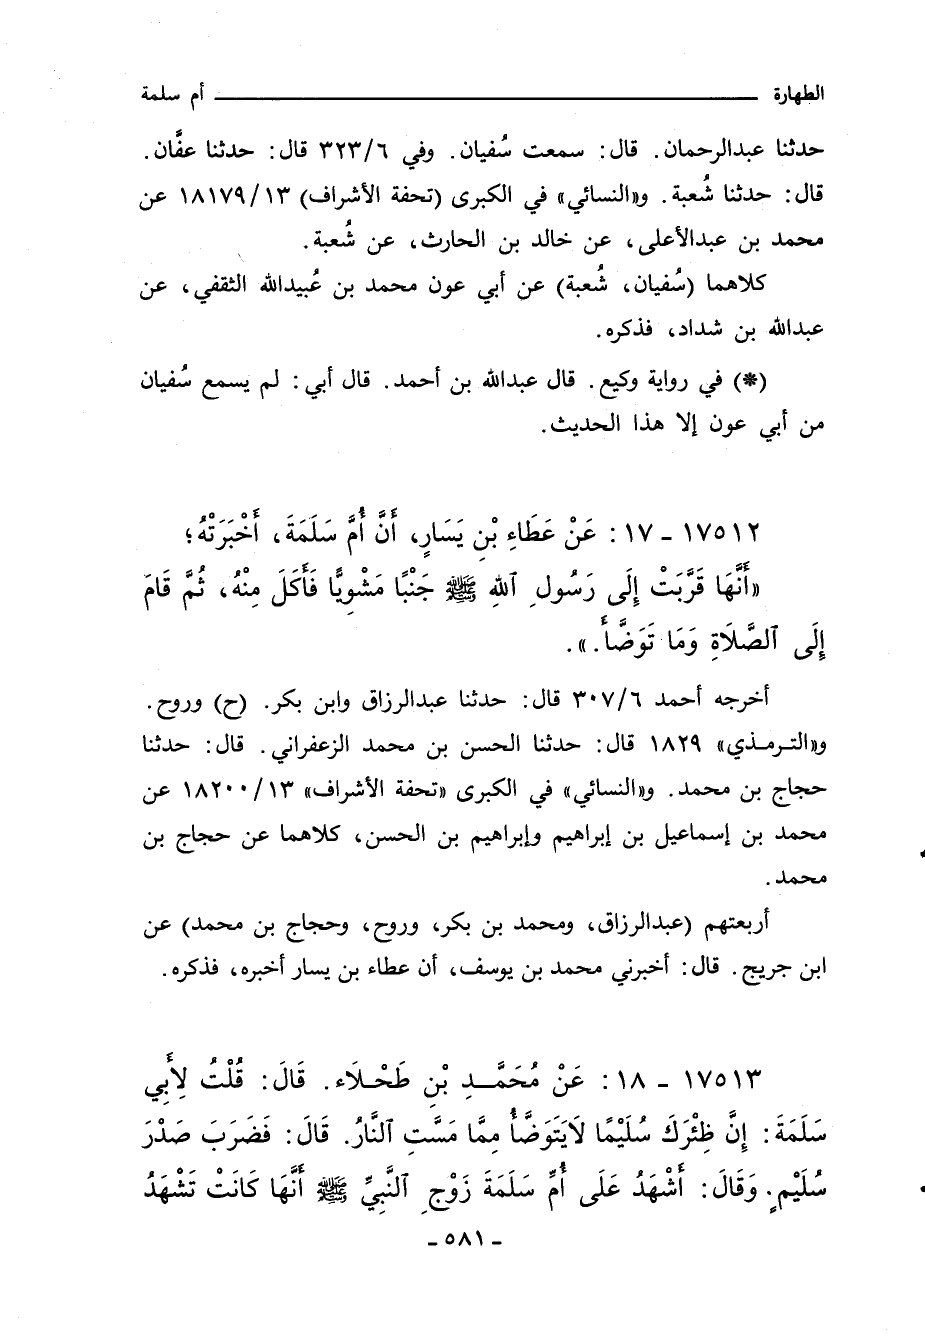 الطهارة ــــــــــــــــــــــــــــــــ أم سلمة
حدثنا عبدالرحمان. قال: سمعت سُفيان. وفي ٣٢٣/٦ قال: حدثنا عفَّان.
قال: حدثنا شُعبة. و«النسائي» في الكبرى (تحفة الأشراف) ١٨١٧٩/١٣ عن
محمد بن عبدالأعلى، عن خالد بن الحارث، عن شُعبة.
كلاهما (سُفيان، شُعبة) عن أبي عون محمد بن عُبيدالله الثقفي، عن
عبدالله بن شداد، فذكره.
(*) في رواية وكيع. قال عبدالله بن أحمد. قال أبي: لم يسمع سُفيان
من أبي عون إلا هذا الحديث.
١٧٥١٢ - ١٧: عَنْ عَطَاءِ بْنِ يَسَارٍ، أَنَّ أُمَّ سَلَمَةَ، أَخْبَرَتْهُ؛
«أَنَّهَا قَرَّبَتْ إِلَى رَسُولِ ٱللهِ ﷺ جَنْبًا مَشْوِيًّا فَأَكَلَ مِنْهُ، ثُمَّ قَامَ
إِلَى ٱلصَّلَاةِ وَمَا تَوَضَّأَ.».
أخرجه أحمد ٣٠٧/٦ قال: حدثنا عبدالرزاق وابن بكر. (ح) وروح.
و«الترمذي» ١٨٢٩ قال: حدثنا الحسن بن محمد الزعفراني. قال: حدثنا
حجاج بن محمد. و«النسائي» في الكبرى «تحفة الأشراف» ١٨٢٠٠/١٣ عن
محمد بن إسماعيل بن إبراهيم وإبراهيم بن الحسن، كلاهما عن حجاج بن
محمد.
أربعتهم (عبدالرزاق، ومحمد بن بكر، وروح، وحجاج بن محمد) عن
ابن جريج. قال: أخبرني محمد بن يوسف، أن عطاء بن يسار أخبره، فذكره.
١٧٥١٣ - ١٨: عَنْ مُحَمَّدِ بْنِ طَحْلَاء. قَالَ: قُلْتُ لِأَبِي
سَلَمَةَ: إِنَّ ظِئْرَكَ سُلَيْمًا لَايَتَوَضَّأُ مِمَّا مَسَّتِ ٱلنَّارُ. قَالَ: فَضَرَبَ صَدْرَ
سُلَيْمٍ. وَقَالَ: أَشْهَدُ عَلَى أُمِّ سَلَمَةَ زَوْجِ ٱلنَّبِيِّ ﷺ أَنَّهَا كَانَتْ تَشْهَدُ
- ٥٨١ -